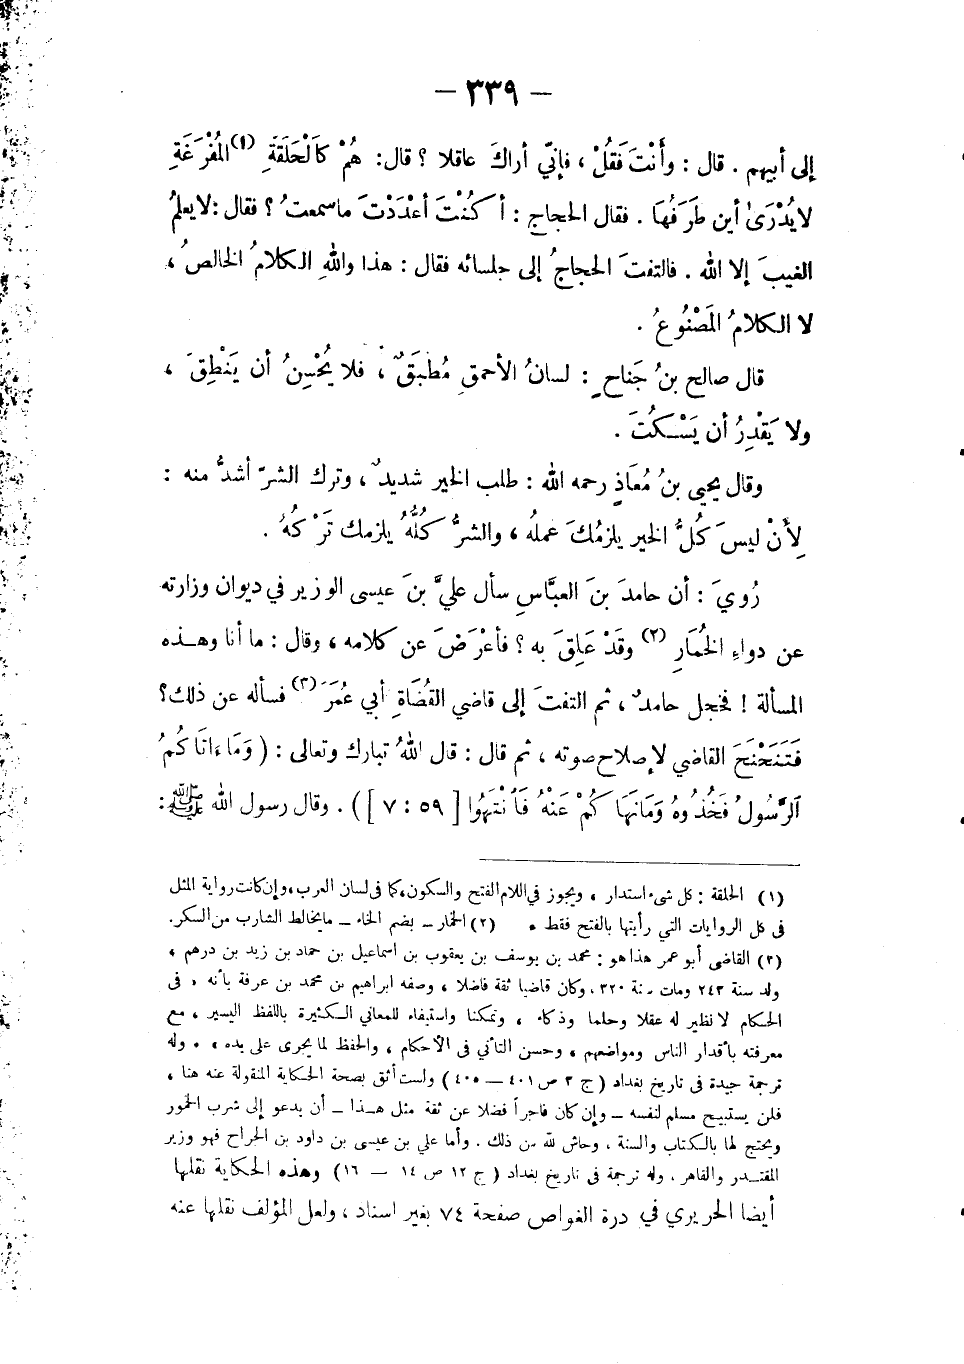 — ٣٣٩ —
إلى أبيهم . قال : وأَنْتَ فَقُلْ ، فإنِّي أراكَ عاقلا ؟ قال : هُمْ كالْحَلَقَةِ (١) المُفْرَغَةِ
لا يُدْرَىٰ أين طَرَفُها . فقال الحجاج : أكُنْتَ أعْدَدْتَ ما سمعتُ ؟ فقال : لا يعلمُ
الغيبَ إلا الله . فالتفتَ الحجاجُ إلى جلسائه فقال : هذا واللهِ الكلامُ الخالصُ ،
لا الكلامُ المَصْنُوعُ .
قال صالح بنُ جَناحٍ : لسانُ الأحمقِ مُطْبَقٌ ، فلا يُحْسِنُ أن يَنْطِقَ ،
ولا يَقْدِرُ أن يَسْكُتَ .
وقال يحيى بنُ مُعَاذٍ رحمه الله : طلب الخير شديدٌ ، وترك الشرّ أشدُّ منه :
لِأَنْ ليسَ كُلُّ الخير يلزمُكَ عملهُ ، والشرُّ كُلُّهُ يلزمك تَرْكُهُ .
رُويَ : أن حامدَ بنَ العبَّاسِ سأل عليَّ بنَ عيسى الوزير في ديوان وزارته
عن دواءِ الخُمَارِ (٢) وقَدْ عَلِقَ به ؟ فأعْرَضَ عن كلامه ، وقال : ما أنا وهـذه
المسألة ! فخجل حامدٌ ، ثم التفتَ إلى قاضي القُضَاةِ أبي عُمَرَ (٣) فسأله عن ذلك ؟
فَتَنَحْنَحَ القاضي لإصلاح صوته ، ثم قال : قال اللهُ تبارك وتعالى : ( وَمَا ءَاتَاكُمُ
ٱلرَّسُولُ فَخُذُوهُ وَمَا نَهَاكُمْ عَنْهُ فَٱنْتَهُوا [ ٥٩ : ٧ ] ) . وقال رسول الله ﷺ :
(١) الحلقة : كل شىء استدار ، ويجوز فى اللام الفتح والسكون ، كما فى لسان العرب ، وإن كانت رواية المثل
فى كل الروايات التي رأيتها بالفتح فقط . (٢) الخمار ــ بضم الخاء ــ ما يخالط الشارب من السكر.
(٣) القاضى أبو عمر هذا هو : محمد بن يوسف بن يعقوب بن اسماعيل بن حماد بن زيد بن درهم ،
ولد سنة ٢٤٣ ومات سنة ٣٢٠ ، وكان قاضيا ثقة فاضلا ، وصفه ابراهيم بن محمد بن عرفة بأنه « فى
الحكام لا نظير له عقلا وحلما وذكاء ، وتمكنا واستيفاء للمعاني الـكثيرة باللفظ اليسير ، مع
معرفته بأقدار الناس ومواضعهم ، وحسن التأني فى الأحكام ، والحفظ لما يجرى على يده » . وله
ترجمة جيدة فى تاريخ بغداد ( ج ٣ ص ٤٠١ ــ ٤٠٥ ) ولست أثق بصحة الحكاية المنقولة عنه هنا ،
فلن يستبيح مسلم لنفسه ــ وإن كان فاجراً فضلا عن ثقة مثل هـذا ــ أن يدعو إلى شرب الخمور
ويحتج لها بالكتاب والسنة ، وحاش لله من ذلك . وأما علي بن عيسى بن داود بن الجراح فهو وزير
المقتـدر والقاهر ، وله ترجمة فى تاريخ بغداد ( ج ١٢ ص ١٤ ــ ١٦ ) وهذه الحكاية نقلها
أيضا الحريري في درة الغواص صفحة ٧٤ بغير اسناد ، ولعل المؤلف نقلها عنه